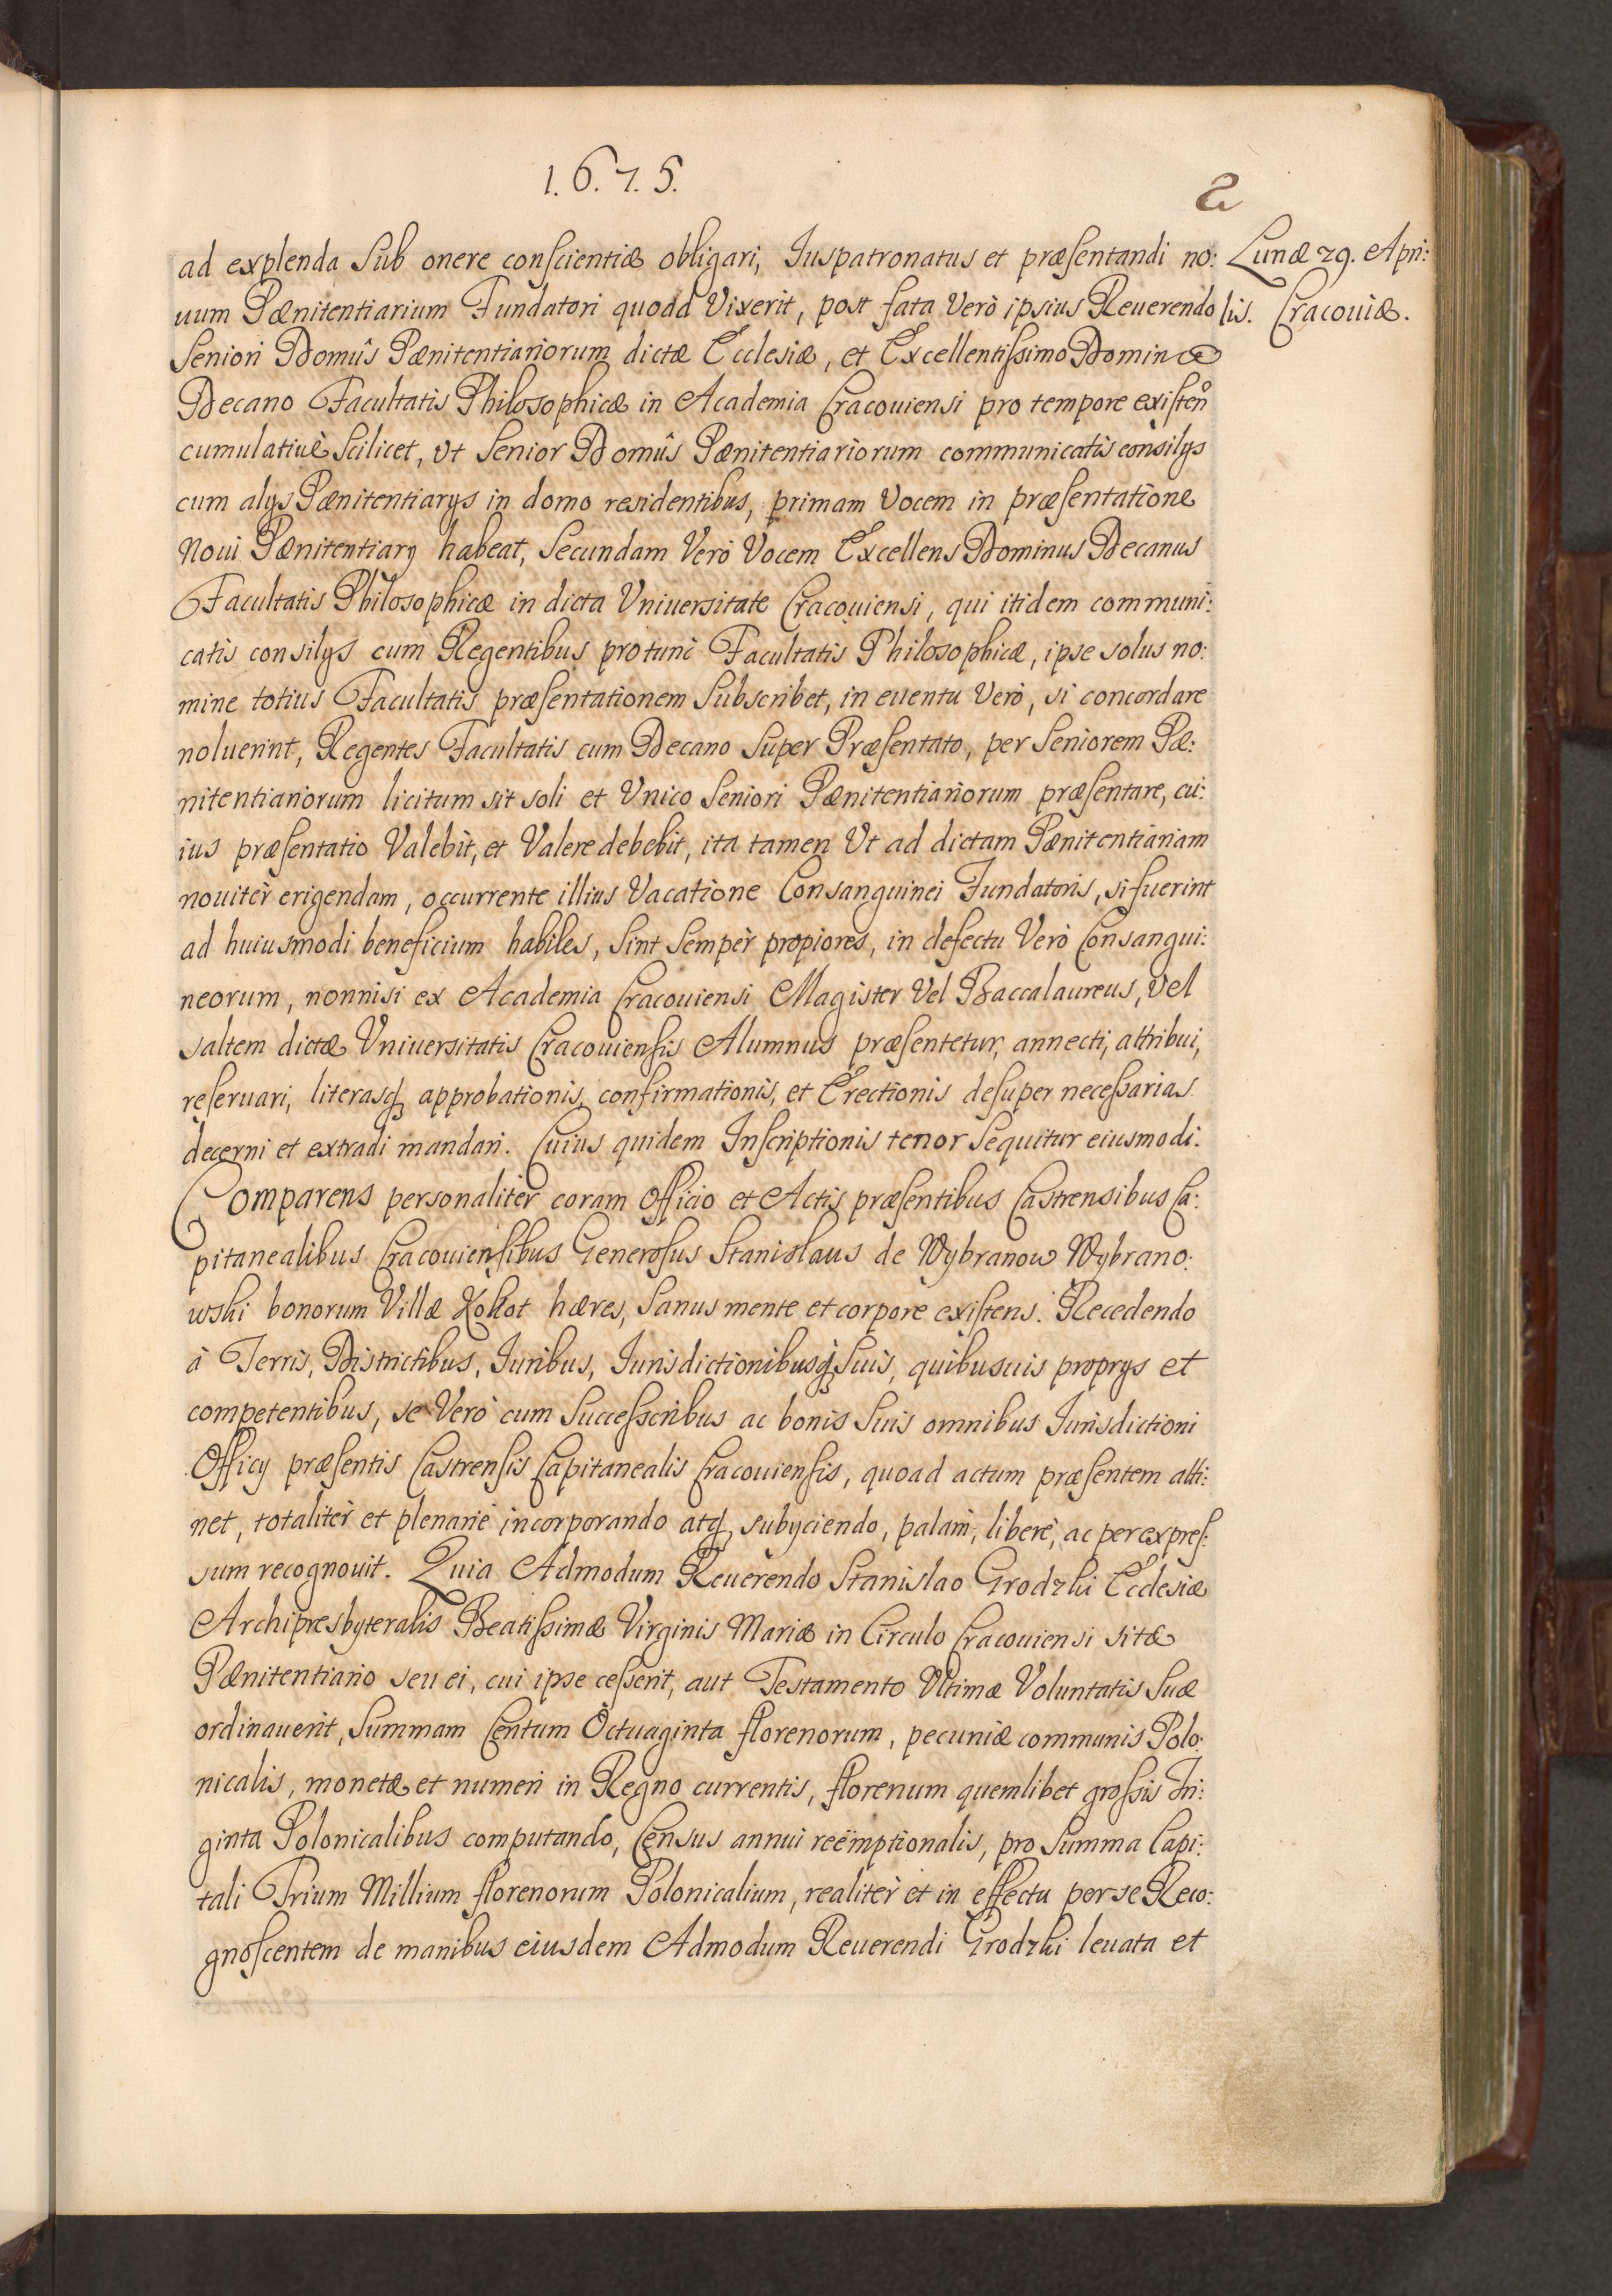 1.6.7.5.
2
Lunæ 29. Apri:
lis. Cracouiæ.
ad explenda sub onere conscientiæ obligari, Iuspatronatus et præsentandi no:
uum Pænitentiarium Fundatori quoad Vixerit, post fata Verò ipsius Reuerendo
Seniori Domûs Pænitentiariorum dictæ Ecclesiæ, et Excellentissimo Domino
Decano Facultatis Philosophicæ in Academia Cracouiensi pro tempore existen̊
cumulatiuè scilicet, vt Senior Domûs Pænitentiariorum communicatis consilys
cum alys Pænitentiarys in domo residentibus, primam Vocem in præsentatione
Noui Pænitentiary habeat, Secundam Verò Vocem Excellens Dominus Decanus
Facultatis Philosophicæ in dicta Vniuersitate Cracouiensi, qui itidem communi:
catis consilys cum Regentibus protunc Facultatis Philosophicæ, ipse solus no:
mine totius Facultatis præsentationem Subscribet, in euentu Verò, si concordare
noluerint, Regentes Facultatis cum Decano Super Præsentato, per Seniorem Pæ:
nitentiariorum licitum sit soli et Vnico Seniori Pænitentiariorum præsentare, cu:
ius præsentatio Valebit, et Valere debebit, ita tamen Vt ad dictam Pænitentiariam
nouitèr erigendam, occurrente illius Vacatione Consanguinei Fundatoris, si fuerint
ad huiusmodi beneficium habiles, Sint Sempèr propiores, in defectu Verò Consangui:
neorum, nonnisi ex Academia Cracouiensi Magister Vel Baccalaureus, Vel
saltem dictæ Vniuersitatis Cracouiensis Alumnus præsentetur, annecti, attribui,
reseruari, literasq, approbationis, confirmationis, et Erectionis desuper necessarias
decerni et extradi mandari. Cuius quidem Inscriptionis tenor Sequitur eiusmodi.
Comparens personalitèr coram Officio et Actis præsentibus Castrensibus Ca:
pitanealibus Cracouiensibus Generosus Stanislaus de Wybranow Wybrano:
wski bonorum Villæ Kokot hæres, Sanus mente et corpore existens. Recedendo
à Terris, Districtibus, Iuribus, Iurisdictionibusq, Suis, quibusuis proprys et
competentibus, se Verò cum Successoribus ac bonis Suis omnibus Iurisdictioni
Officy præsentis Castrensis Capitanealis Cracouiensis, quoad actum præsentem atti:
net, totalitèr et plenariè incorporando atq, subyciendo, palàm, liberè, ac per expres:
sum recognouit. Quia Admodum Reuerendo Stanislao Grodzki Ecclesiæ
Archipresbyteralis Beatissimæ Virginis Mariæ in Circulo Cracouiensi sitæ
Pænitentiario seu ei, cui ipse cesserit, aut Testamento Vltimæ Voluntatis Suæ
ordinauerit, Summam Centum Octuaginta florenorum, pecuniæ communis Polo:
nicalis, monetæ et numeri in Regno currentis, florenum quemlibet grossis Tri:
ginta Polonicalibus computando, Census annui reëmptionalis, pro Summa Capi:
tali Trium Millium florenorum Polonicalium, realitèr et in effectu per se Reco:
gnoscentem de manibus eiusdem Admodum Reuerendi Grodzki leuata et